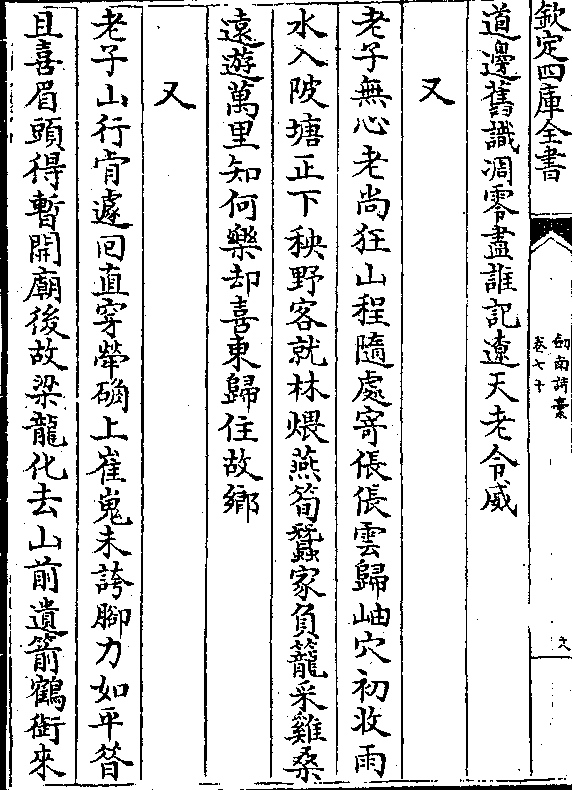 欽定四庫全書
劒南詩藁
卷七十
六
道邊舊識凋零盡誰記遼天老令威
又
老子無心老尚狂山程隨處寄倀倀雲歸岫穴初收雨
水入陂塘正下秧野客就林煨燕筍蠶家負籠采雞桑
遠遊萬里知何樂却喜東歸住故鄉
又
老子山行肯遽回直穿犖确上崔嵬未誇腳力如平昔
且喜眉頭得暫開廟後故梁龍化去山前遺箭鶴銜來